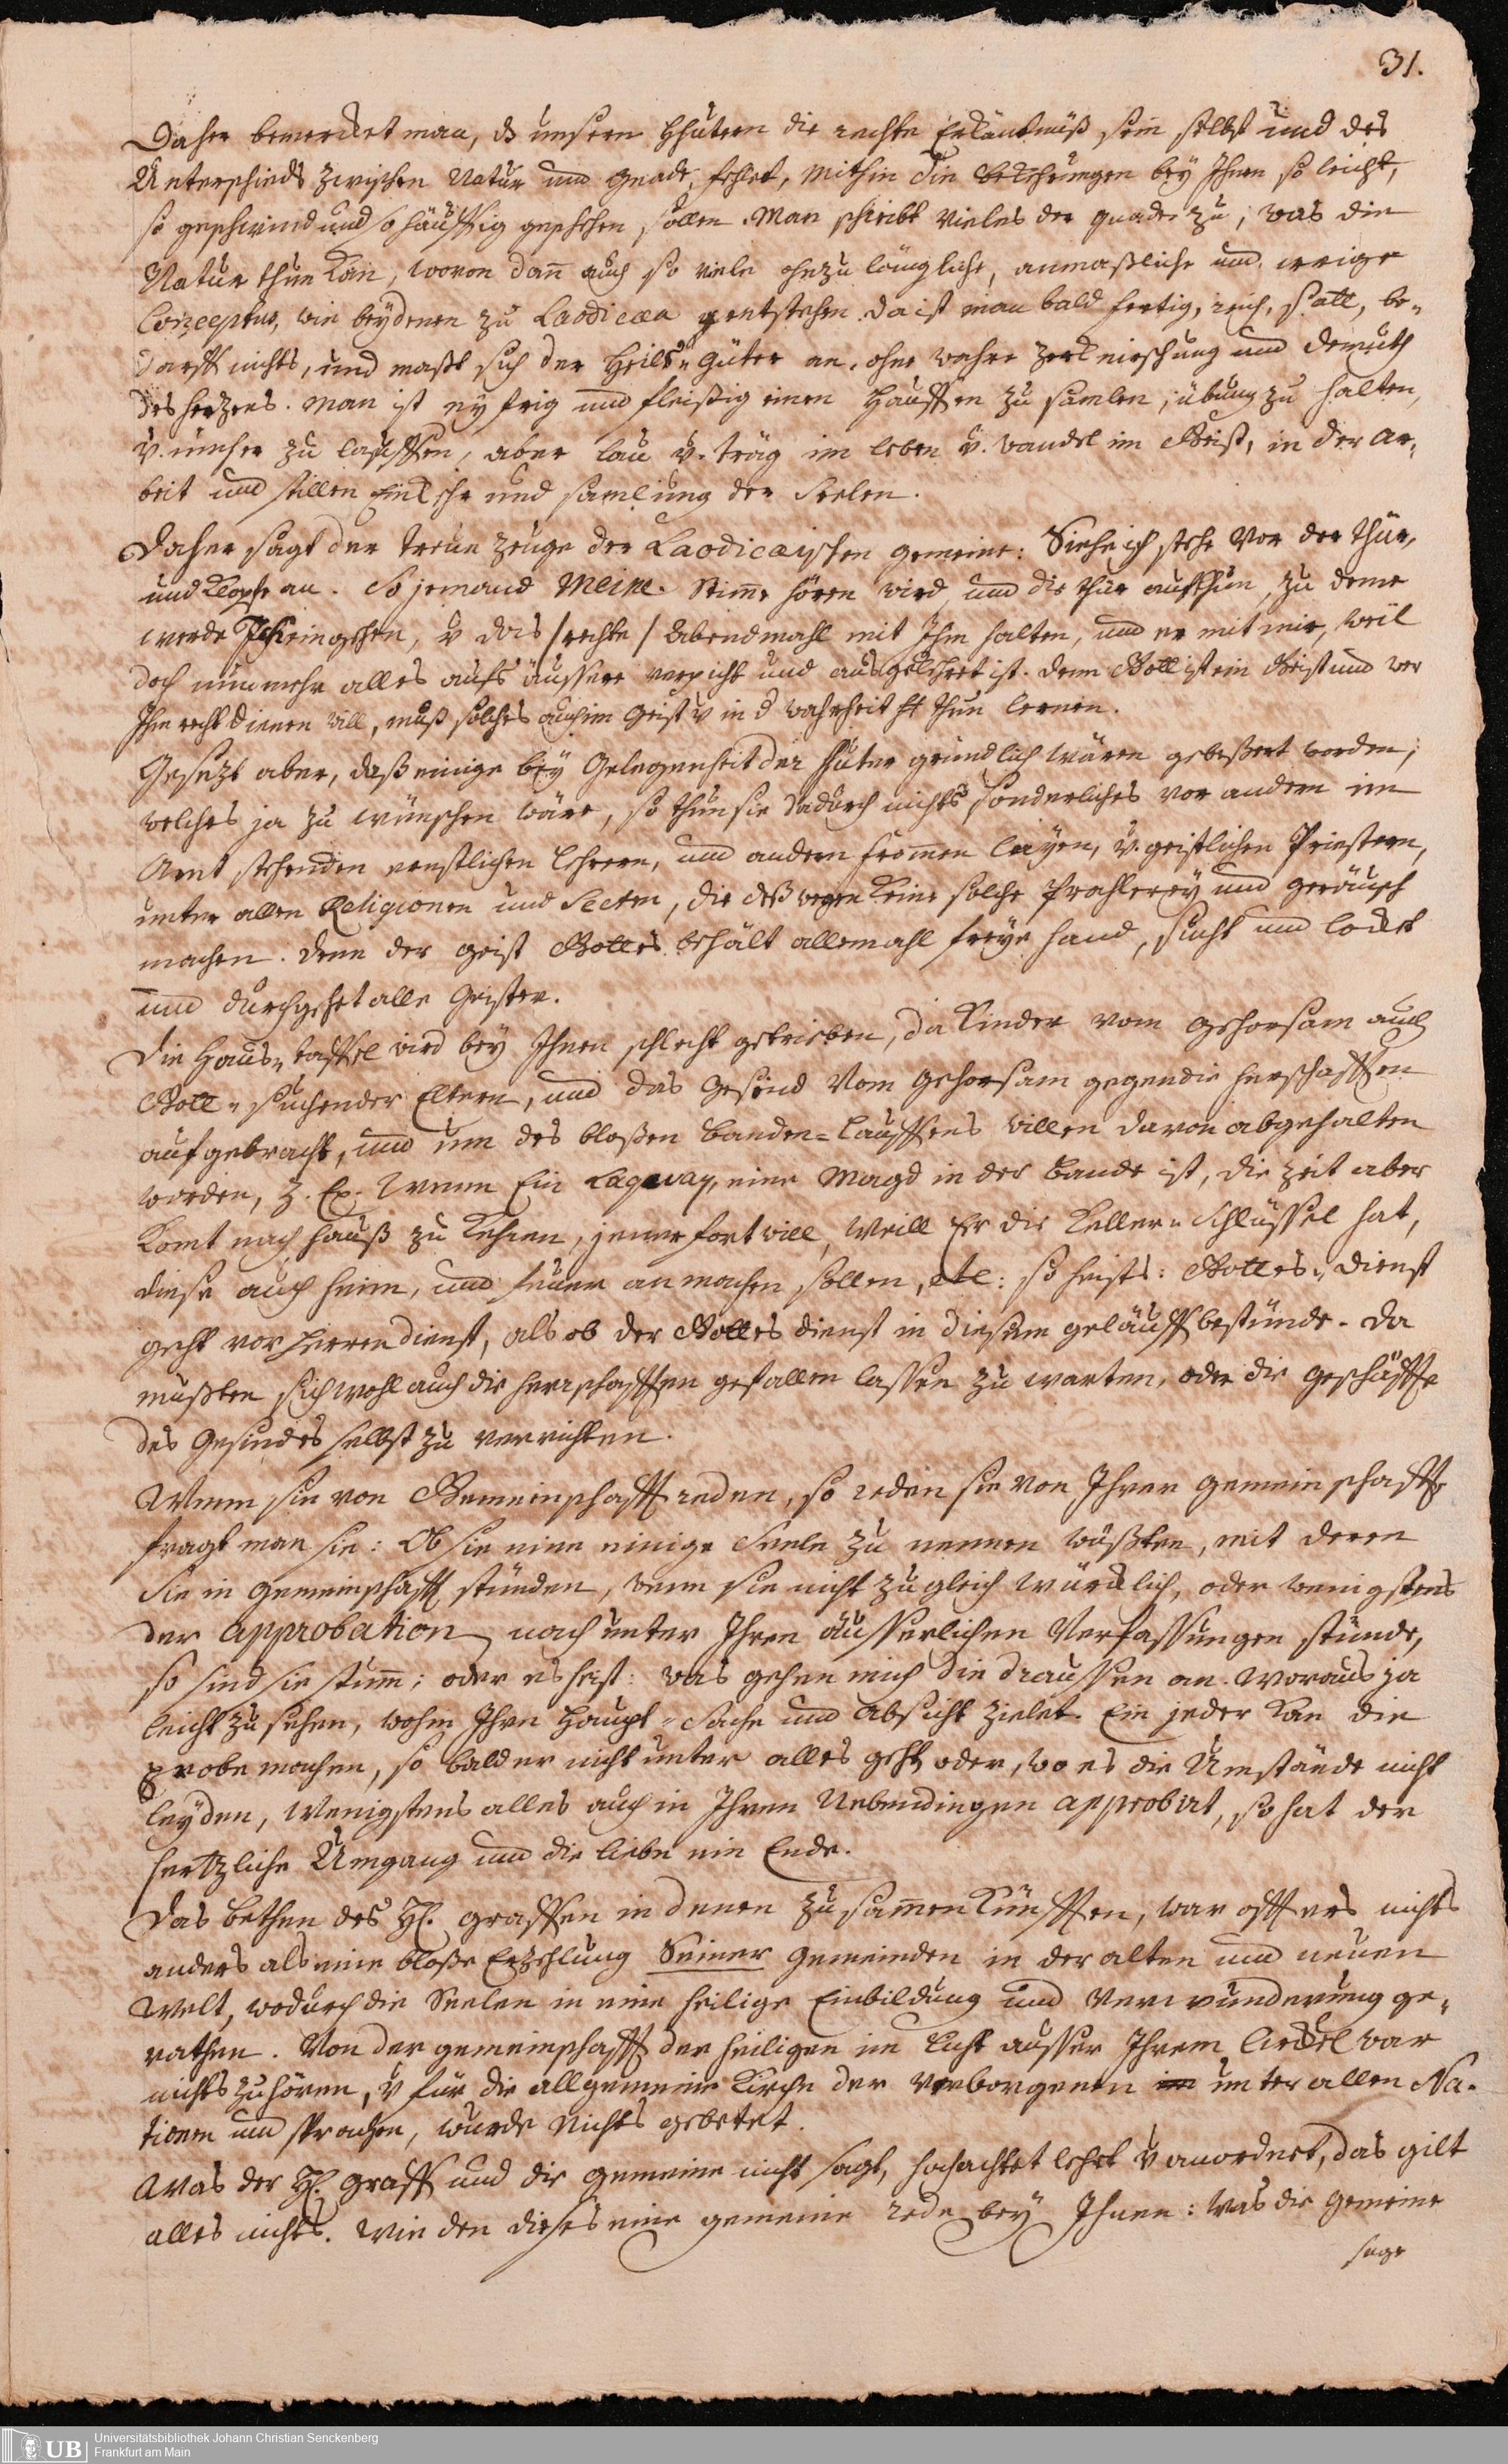 31.
Daher bemercket man, ds unsern Hhutern die rechte Erkäntnuß sein selbst und des
Unterschieds zwischen Natur und Gnade, fehlet, mithin die bekehrungen bey Ihnen so leicht,
so geschwind und so häuffig geschehen sollen. Man schreibt vieles der gnade zu, was die
Natur thun kan, wovon dann auch so viele ohnzulängliche, anmaßliche und irrige
Concepten, wie bey denen zu Laodicæa entstehen. da ist man bald fertig, reich, satt, be-
darff nichts, und maßt sich der Heils-Güter an, ohne wahre zerknirschung und demuth
des herzens. Man ist eyfrig und fleißig einen Hauffen zu samlen, übung zu halten,
u. umher zu lauffen, aber lau u. träg im leben u. wandel im Geist, in der ar-
beit und stillen Einkehr und samlung der Seelen.
Daher sagt der treue Zeuge der Laodicæischen gemeine: Siehe ich stehe vor der thür,
und klopfe an. So jemand Meine Stimme hören wird, und die thür aufthun, zu deme
werde Ich eingehen, u das /rechte/ Abendmahl mit Ihm halten, und er mit mir, weil
doch nunmehr alles aufs äussere erpicht und ausgekehret ist. denn Gott ist ein Geist und wer
Ihm recht dienen will, muß solches auch im Geist u in d wahrheit thun lernen.
Gesezt aber, daß einige bey Gelegenheit der Huter gründlich wären gebeßert worden,
welches ja zu wünschen wäre, so thun sie dadurch nichts sonderliches vor andern im
Amt stehenden ernstlichen Lehrern, und andern frommen layen, u. geistlichen Priestern,
unter allen Religionen und Secten, die deßwegen keine solche Prahlerey und geräusch
machen. denn der geist Gottes behält allemahl freye hand, sucht und locket
und durchgehet alle Geister.
Die Haus-taffel wird bey Ihnen schlecht getrieben, da Kinder vom gehorsam auch
Gott-suchender Eltern, und das Gesind vom Gehorsam gegen die herschafften
aufgebracht, und um des bloßen banden-lauffens willen davon abgehalten
worden, z. Ex. Wenn Ein Laquay, eine Magd in der bande ist, die zeit aber
komt nach hauß zu kehren, jener fort will, weill Er die keller-schlüssel hat,
diese auch heim, und feuer anmachen sollen, etc: so heists: Gottes-dienst
geht vor herrendienst, als ob der Gottesdienst in diesem geläuff bestünde. da
mußten sich wohl auch die herrschafften gefallen lassen zu warten, oder die geschäffte
des Gesindes selbst zu verrichten.
Wenn sie von Gemeinschafft reden, so reden sie von Ihrer gemeinschafft,
fragt man sie: Ob sie eine einige Seele zu nennen wüßten, mit deren
Sie in gemeinschafft stünden, wenn sie nicht zugleich würcklich, oder wenigstens
der approbation nach unter Ihren äusserlichen Verfassungen stünde,
so sind sie stumm; oder es heist: was gehen mich die draussen an. Woraus ja
leicht zu sehen, wohin Ihre Haupt-sache und absicht zielet. Ein jeder kan die
probe machen, so bald er nicht unter alles geht, oder, wo es die Umstände nicht
leyden, wenigstens alles auch in Ihren Nebendingen approbirt, so hat der
hertzliche Umgang und die liebe ein Ende.
Das bethen des H. graffen in denen zusammenkünfften, war öffters nichts
anders als eine bloße Erzehlung Seiner gemeinden in der alten und neuen
Welt, wodurch die Seelen in eine heilige Einbildung und Verwunderung ge-
rathen. Von der gemeinschafft der heiligen im licht ausser Ihrem Circkel war
nichts zu hören, u für die allgemeine Kirche der Verborgenen unter allen Na-
tionen und sprachen, wurde nichts gebetet.
Was der H. Graff und die gemeine nicht sagt, hochachtet lehrt u anordnet, das gilt
alles nichts. Wie den dieses eine gemeine rede bey Ihnen: Was die Gemeine
sage
UB
Universitätsbibliothek Johann Christian Senckenberg
Frankfurt am Main